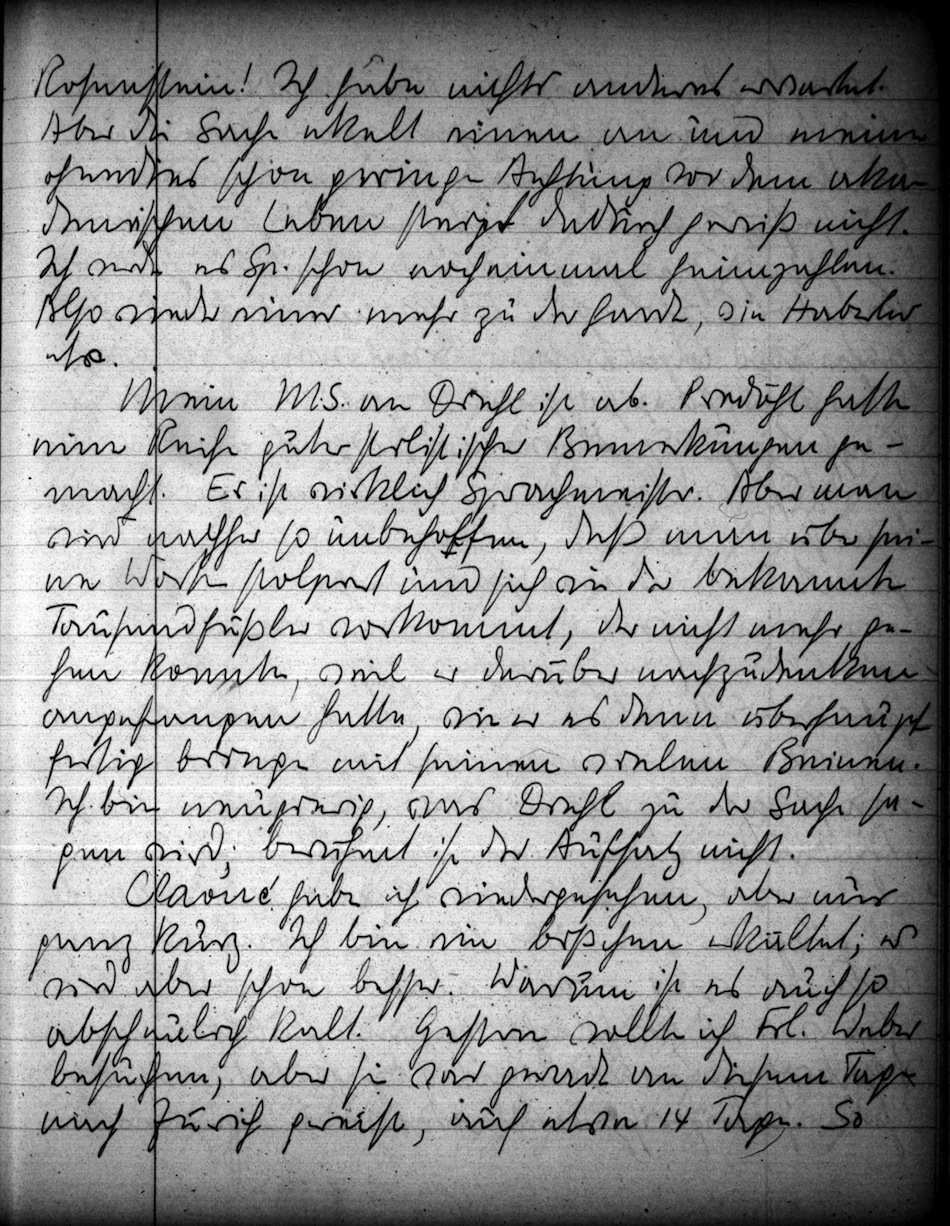 Rosenstein! Ich habe nichts anderes erwartet.
Aber die Sache ekelt einen an und meine
ohnedies schon geringe Achtung vor dem aka-
demischen Leben steigt dadurch gewiß nicht.
Ich werde es Sp. schon nocheinmal heimzahlen.
Also wieder einer mehr zu der Garde, die Haberler
etc.
Mein M.S. an Diehl ist ab. Predöhl hatte
eine Reihe guter stilistischer Bemerkungen ge-
macht. Er ist wirklich Sprachmeister. Aber man
wird nachher so unbeholfen, daß man über sei-
ne Worte stolpert und sich wie der bekannte
Tausendfüßler vorkommt, der nicht mehr ge-
hen konnte, weil er darüber nachzudenken
angefangen hatte, wie er es denn überhaupt
fertig bringe mit seinen vielen Beinen.
Ich bin neugierig, was Diehl zu der Sache sa-
gen wird; berühmt ist der Aufsatz nicht.
habe ich wiedergesehen, aber nur
ganz kurz. Ich bin ein bißchen erkältet; es
wird aber schon besser. Warum ist es auch so
abscheulich kalt. Gestern wollte ich Frl. Weber
besuchen, aber sie war gerade an diesem Tage
nach Zürich gereist, auf etwa 14 Tage. So